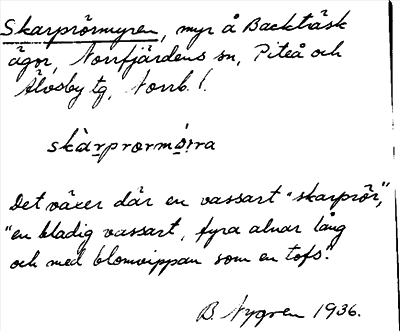 Skarprörmyren, myr å Backträsk
ägor, Norrfjärdens sn, Piteå och
Älvsby tg, Norrb. l.
skàrprormó̱rra
Det växer där en vassart "skarprör",
"en bladig vassart, fyra alnar lång
och med blomvippan som en tofs".
B. Nygren 1936.